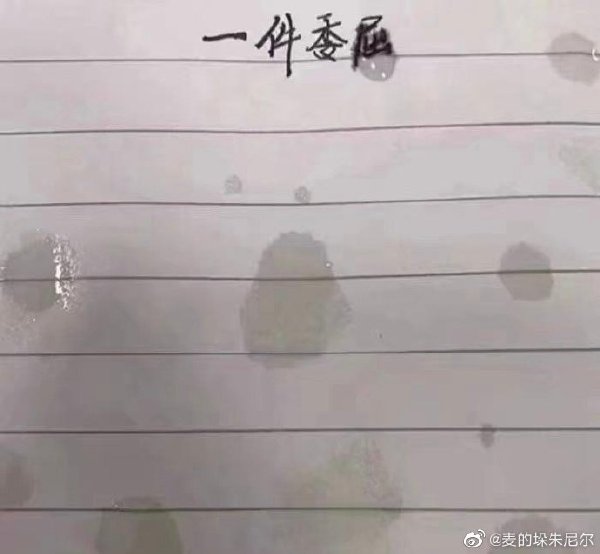 一件委屈
@麦的垛朱尼尔